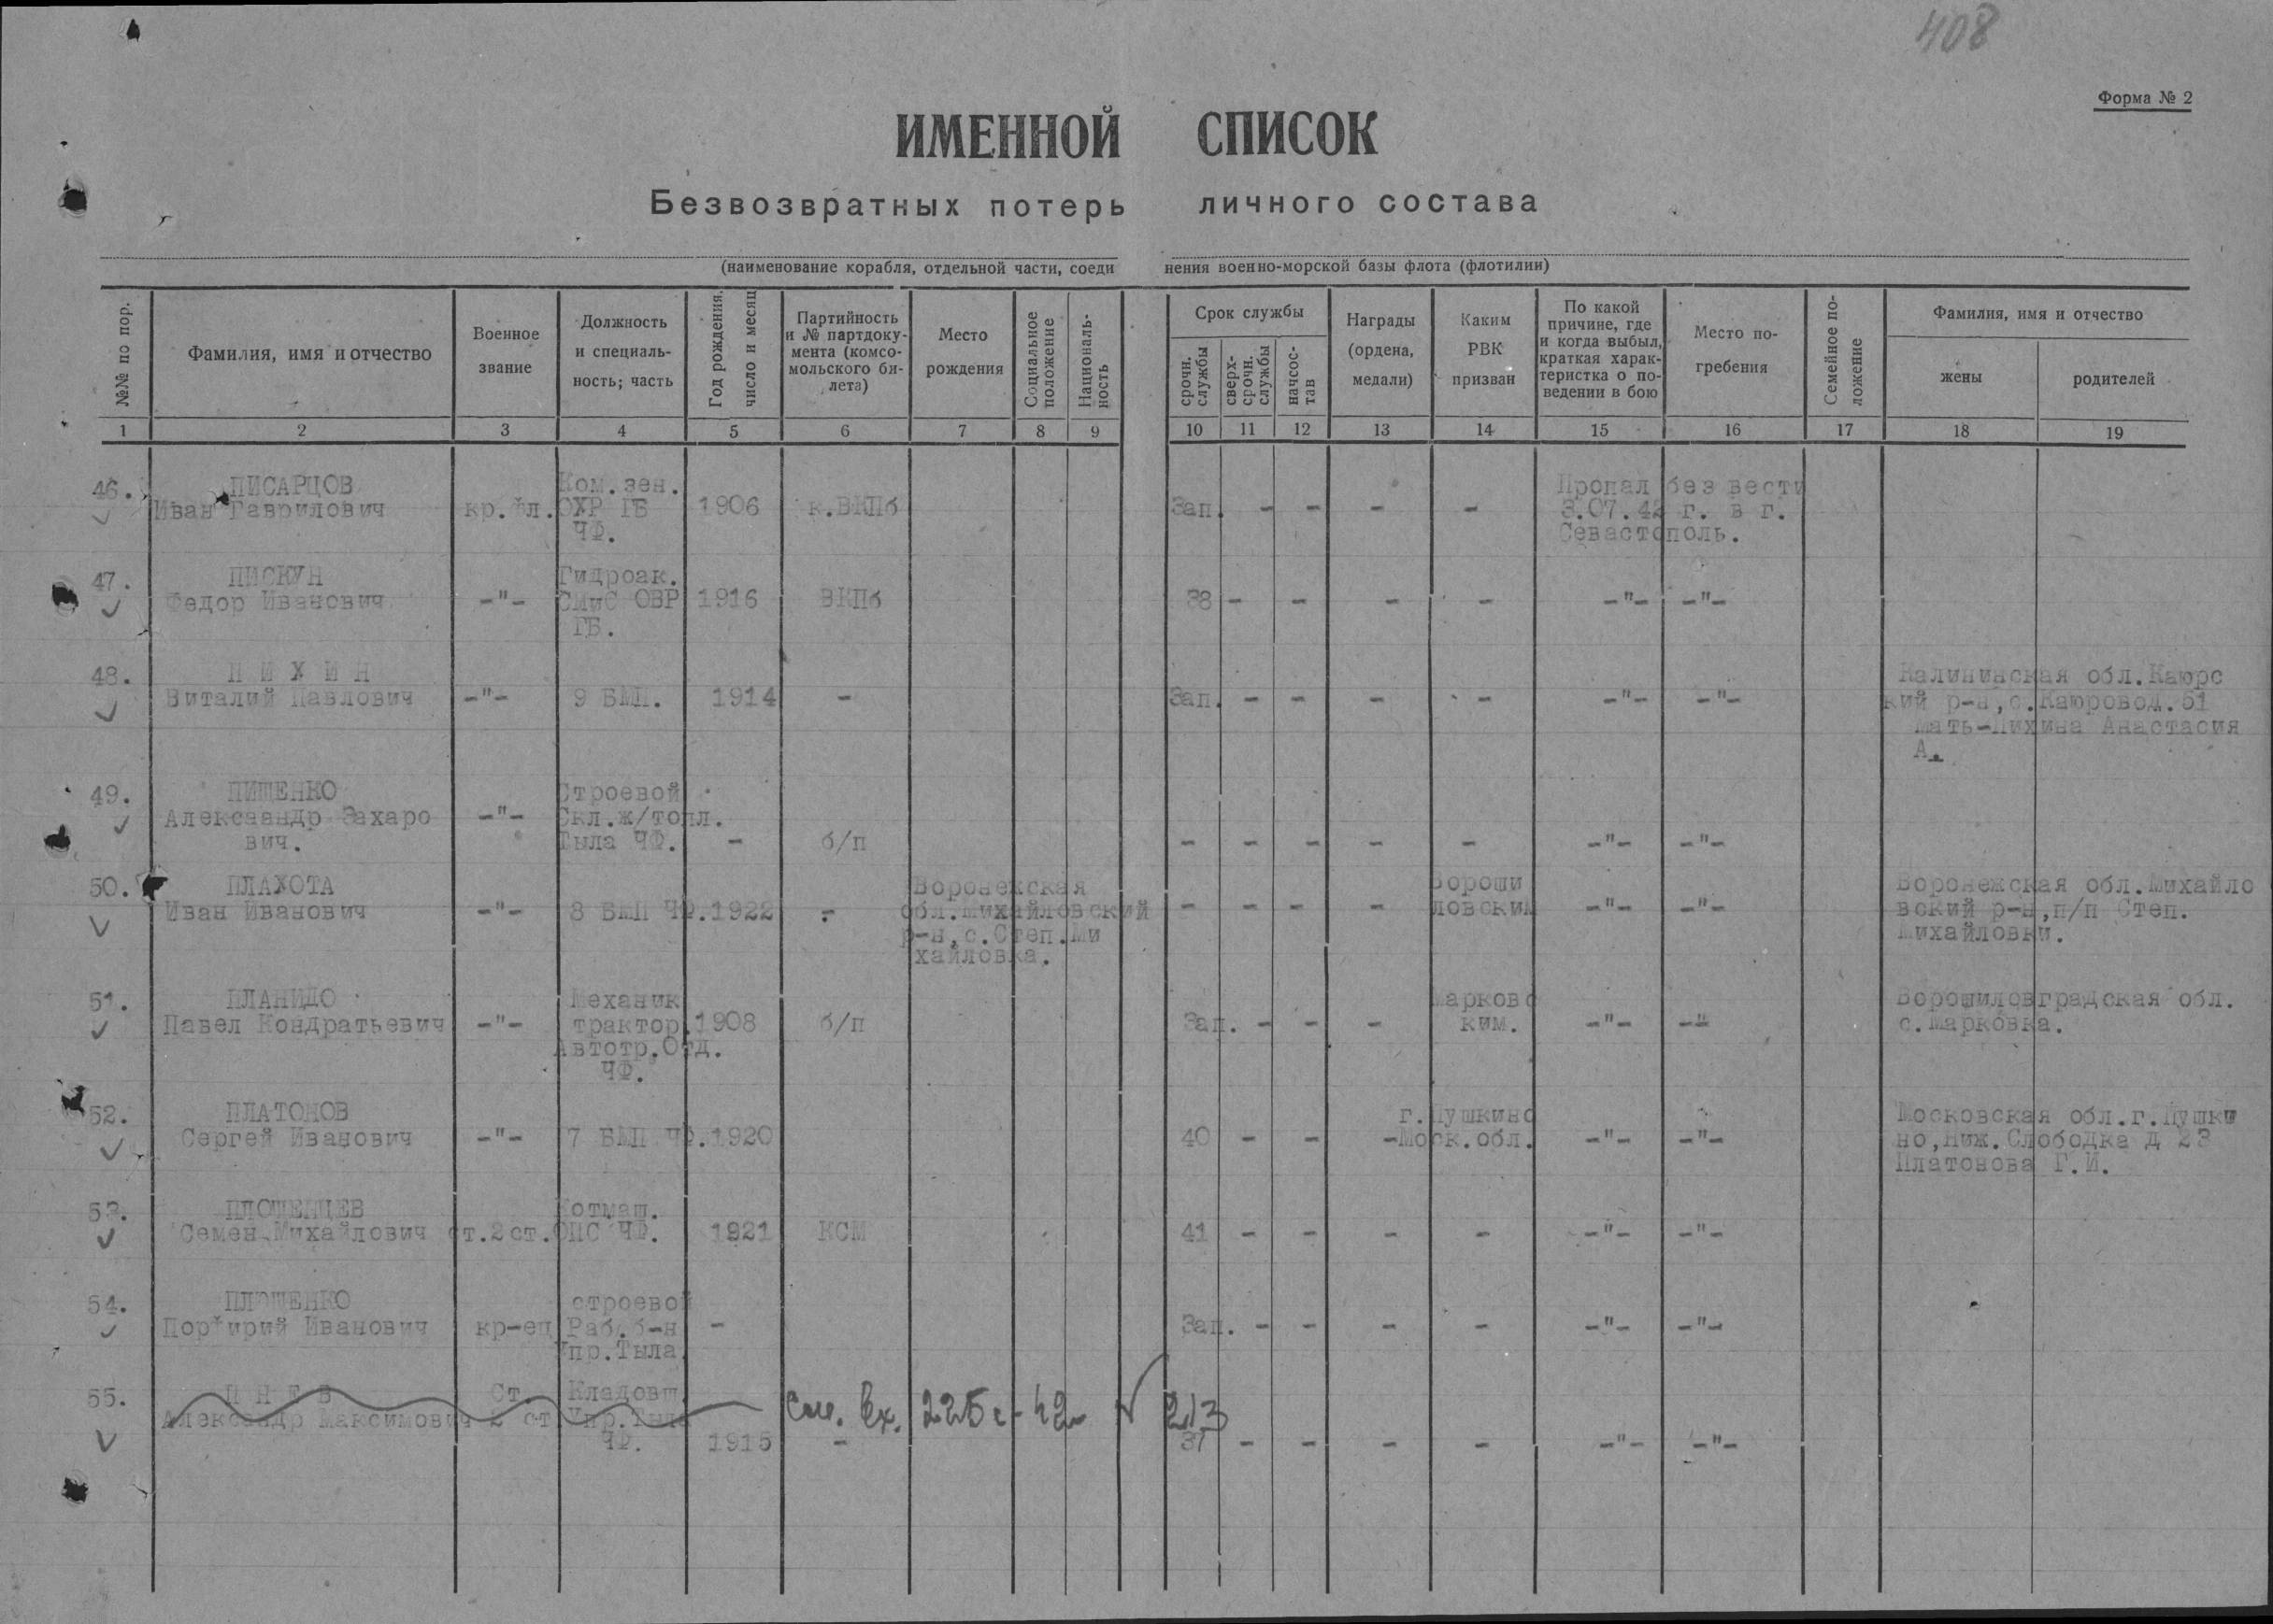 408
Форма № 2
ИМЕННОЙ СПИСОК
Безвозвратных потерь личного состава
(наименование корабля, отдельной части, соеди нения военно-морской базы флота (флотилии)
№№ по пор.
Фамилия, имя и отчество
Военное
звание
Должность
и специаль-
ность; часть
Год рождения,
число и месяц
Партийность
и № партдоку-
мента (комсо-
мольского би-
лета)
Место
рождения
Социальное
положение
Националь-
ность
Срок службы
срочн.
службы
сверх-
срочн.
службы
начсос-
тав
Награды
(ордена,
медали)
Каким
РВК
призван
По какой
причине, где
и когда выбыл,
краткая харак-
теристка о по-
ведении в бою
Место по-
гребения
Семейное по-
ложение
Фамилия, имя и отчество
жены
родителей
1 2 3 4 5 6 7 8 9 10 11 12 13 14 15 16 17 18 19
46. ПИСАРЦОВ Ком.зен. Пропал без вести
Иван Гаврилович кр.фл. ОХР ГБ 1906 к.ВКПб Зап. - - - - 3.07.42 г. в г.
ЧФ. Севастополь.
47. ПИСКУН Гидроак.
Федор Иванович -"- СНиС ОВР 1916 ВКПб 38 - - - - -"- -"-
ГБ.
48. П И Х И Н Калининская обл.Каюрс
Виталий Павлович -"- 9 БМП. 1914 - Зап. - - - - -"- -"- кий р-н,с.Каюровод.61
Мать-Пихина Анастасия
А.
49. ПИШЕНКО Строевой
Александр Захаро -"- Скл.ж/топл.
вич. Тыла ЧФ. - б/п - - - - - -"- -"-
50. ПЛАХОТА Воронежская Вороши Воронежская обл.Михайло
Иван Иванович -"- 8 БМП ЧФ. 1922 - обл.Михайловский - - - - ловским -"- -"- вский р-н,п/п Степ.
р-н,с.Степ.Ми Михайловки.
хайловка.
51. ПЛАНИДО Механик Марковс Ворошиловградская обл.
Павел Кондратьевич -"- трактор. 1908 б/п Зап. - - - ким. -"- -"- с.Марковка.
Автотр.Отд.
ЧФ.
52. ПЛАТОНОВ г.Пушкино Московская обл.г.Пушки
Сергей Иванович -"- 7 БМП ЧФ. 1920 40 - - -Моск.обл. -"- -"- но,Ниж.Слободка д 23
Платонова Г.И.
53. ПЛОШЕНЦЕВ Котмаш.
Семен Михайлович ст.2ст. ОПС ЧФ. 1921 КСМ 41 - - - - -"- -"-
54. ПЛОШЕНКО строевой
Порфирий Иванович кр-ец Раб.б-н - Зап. - - - - -"- -"-
Упр.Тыла.
55. П Н Е В Ст. Кладовщ.
Александр Максимович 2 ст Упр.Тыла см. вх. 225с-42 213
ЧФ. 1915 - 37 - - - - -"- -"-